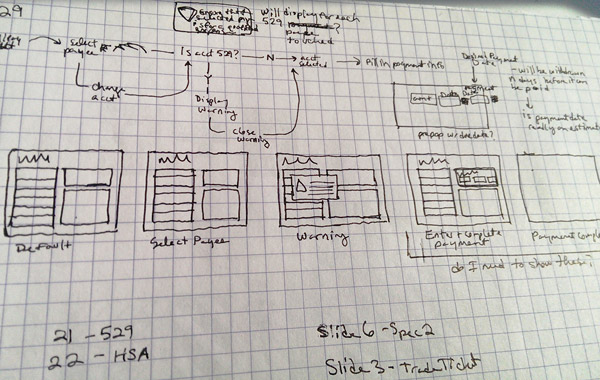 29
Will display for each
529
touched
Select
payee
Is acct 529?
N
acct
selected
Fill in payment info
Payment
Date
- will be withdrawn
n days before it can
be paid
Is payment date
really an estimate
change
acct
Y
Display
Warning
close
warning
amt
Date
prepop w/ due date?
Default
Select Payee
Warning
Enter + Complete
payment
Payment Compl
do I need to show these?
21 - 529
22 - HSA
Slide 6 - Spec 2
Slide 3 - trade Ticket